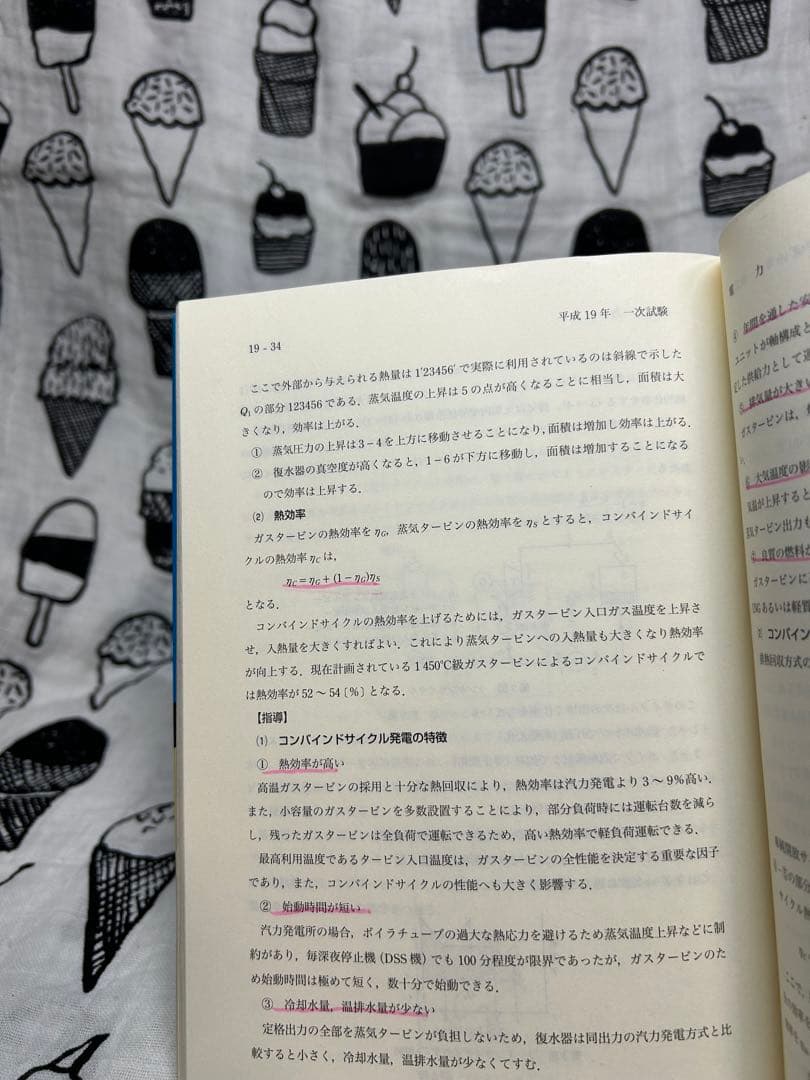 19 - 34
平成 19 年 一次試験
ここで外部から与えられる熱量は 1′23456′ で実際に利用されているのは斜線で示した
Q1 の部分 123456 である．蒸気温度の上昇は 5 の点が高くなることに相当し，面積は大
きくなり，効率は上がる．
① 蒸気圧力の上昇は 3－4 を上方に移動させることになり，面積は増加し効率は上がる．
② 復水器の真空度が高くなると，1－6 が下方に移動し，面積は増加することになる
ので効率は上昇する．
(2) 熱効率
ガスタービンの熱効率を ηG，蒸気タービンの熱効率を ηS とすると，コンバインドサイ
クルの熱効率 ηC は，
ηC＝ηG＋(1－ηG)ηS
となる．
コンバインドサイクルの熱効率を上げるためには，ガスタービン入口ガス温度を上昇さ
せ，入熱量を大きくすればよい．これにより蒸気タービンへの入熱量も大きくなり熱効率
が向上する．現在計画されている 1 450℃級ガスタービンによるコンバインドサイクルで
は熱効率が 52 ～ 54〔%〕となる．
【指導】
(1) コンバインドサイクル発電の特徴
① 熱効率が高い
高温ガスタービンの採用と十分な熱回収により，熱効率は汽力発電より 3 ～ 9%高い．
また，小容量のガスタービンを多数設置することにより，部分負荷時には運転台数を減ら
し，残ったガスタービンは全負荷で運転できるため，高い熱効率で軽負荷運転できる．
最高利用温度であるタービン入口温度は，ガスタービンの全性能を決定する重要な因子
であり，また，コンバインドサイクルの性能へも大きく影響する．
② 始動時間が短い
汽力発電所の場合，ボイラチューブの過大な熱応力を避けるため蒸気温度上昇などに制
約があり，毎深夜停止機（DSS 機）でも 100 分程度が限界であったが，ガスタービンのた
め始動時間は極めて短く，数十分で始動できる．
③ 冷却水量，温排水量が少ない
定格出力の全部を蒸気タービンが負担しないため，復水器は同出力の汽力発電方式と比
較すると小さく，冷却水量，温排水量が少なくてすむ．
力
④ 年間を通した安
ユニットが軸構成と
した供給力として運
⑤ 排気量が大きい
ガスタービンは，
⑥ 大気温度の影
気温が上昇すると
蒸気タービン出力も
良質の燃料が
ガスタービンに
LNG あるいは軽質
コンバイン
排熱回収方式の
の部分
サイクル
ここで，